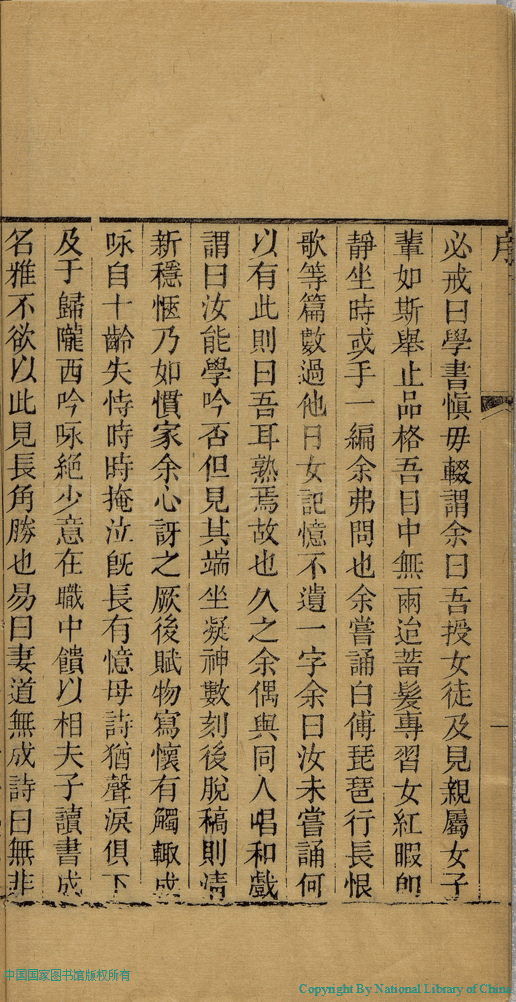 序
一
必戒曰學書慎毋輟謂余曰吾授女徒及見親屬女子
輩如斯舉止品格吾目中無兩迨蓄髮專習女紅暇卽
靜坐時或手一編余弗問也余嘗誦白傅琵琶行長恨
歌等篇數過他日女記憶不遺一字余曰汝未嘗誦何
以有此則曰吾耳熟焉故也久之余偶與同人唱和戲
謂曰汝能學吟否但見其端坐凝神數刻後脫稿則清
新穩愜乃如慣家余心訝之厥後賦物寫懷有觸輒成
咏自十齡失恃時時掩泣旣長有憶母詩猶聲淚俱下
及于歸隴西吟咏絕少意在職中饋以相夫子讀書成
名雅不欲以此見長角勝也易曰妻道無成詩曰無非
中国国家图书馆版权所有
Copyright By National Library of China